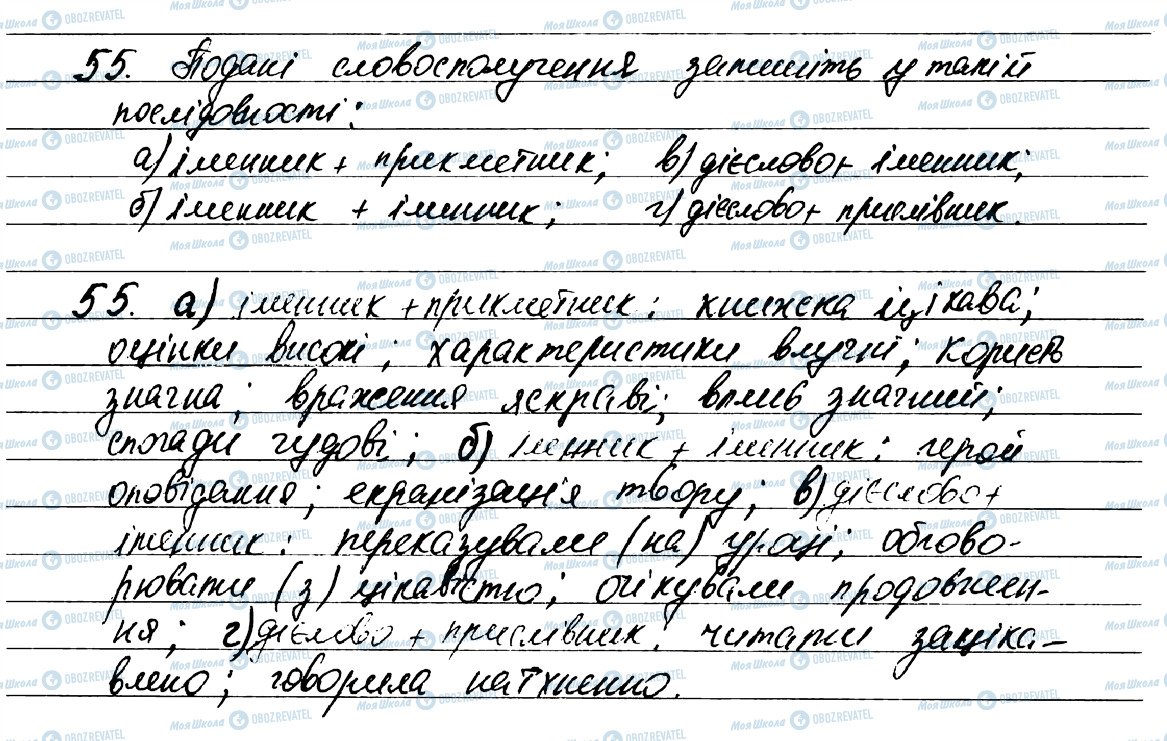 55. Подані словосполучення запишіть у такій
послідовності:
а) іменник + прикметник; в) дієслово + іменник;
б) іменник + іменник; г) дієслово + прислівник.
55. а) іменник + прикметник: книжка цікава;
оцінки високі; характеристики влучні; користь
значна; враження яскраві; вплив значний;
спогади чудові; б) іменник + іменник: герой
оповідання; екранізація твору; в) дієслово +
іменник: переказували (на) уроці; обгово-
рювати (з) цікавістю; очікували продовжен-
ня; г) дієслово + прислівник: читати заціка-
влено; говорила натхненно.
Моя Школа OBOZREVATEL